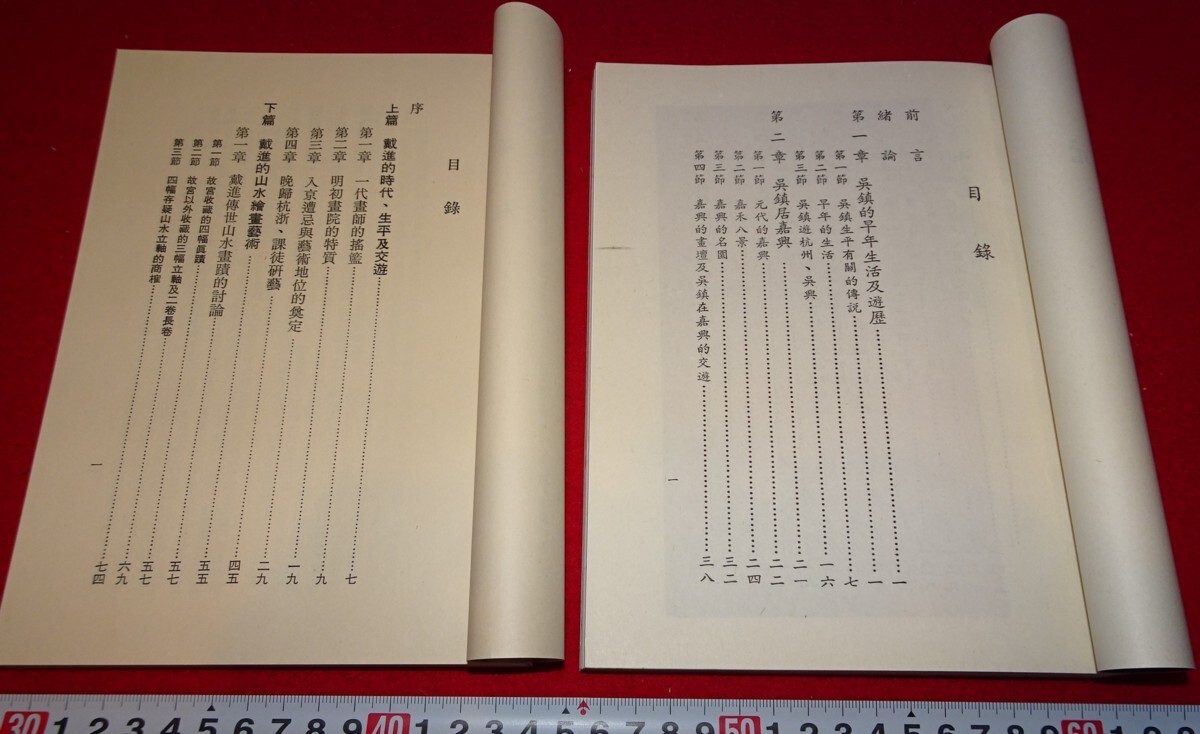 目錄
序
上篇 戴進的時代、生平及交遊……七
第一章 一代畫師的搖籃……九
第二章 明初畫院的特質……一九
第三章 入京遭忌與藝術地位的奠定……二九
第四章 晚歸杭浙、課徒硏藝……四五
下篇 戴進的山水繪畫藝術……五五
第一章 戴進傳世山水畫蹟的討論……五七
第一節 故宮收藏的四幅眞蹟……五七
第二節 故宮以外收藏的三幅立軸及二卷長卷……六九
第三節 四幅存疑山水立軸的商榷……七四
一
目錄
前言
緒論
第一章 吳鎮的早年生活及遊歷……一
第一節 吳鎮生平有關的傳說……一
第二節 早年的生活……七
第三節 吳鎮遊杭州、吳興……一六
第二章 吳鎮居嘉興……二一
第一節 元代的嘉興……二二
第二節 嘉禾八景……二四
第三節 嘉興的名園……三二
第四節 嘉興的畫壇及吳鎮在嘉興的交遊……三八
一
30 1 2 3 4 5 6 7 8 9 40 1 2 3 4 5 6 7 8 9 50 1 2 3 4 5 6 7 8 9 60 1 9 8